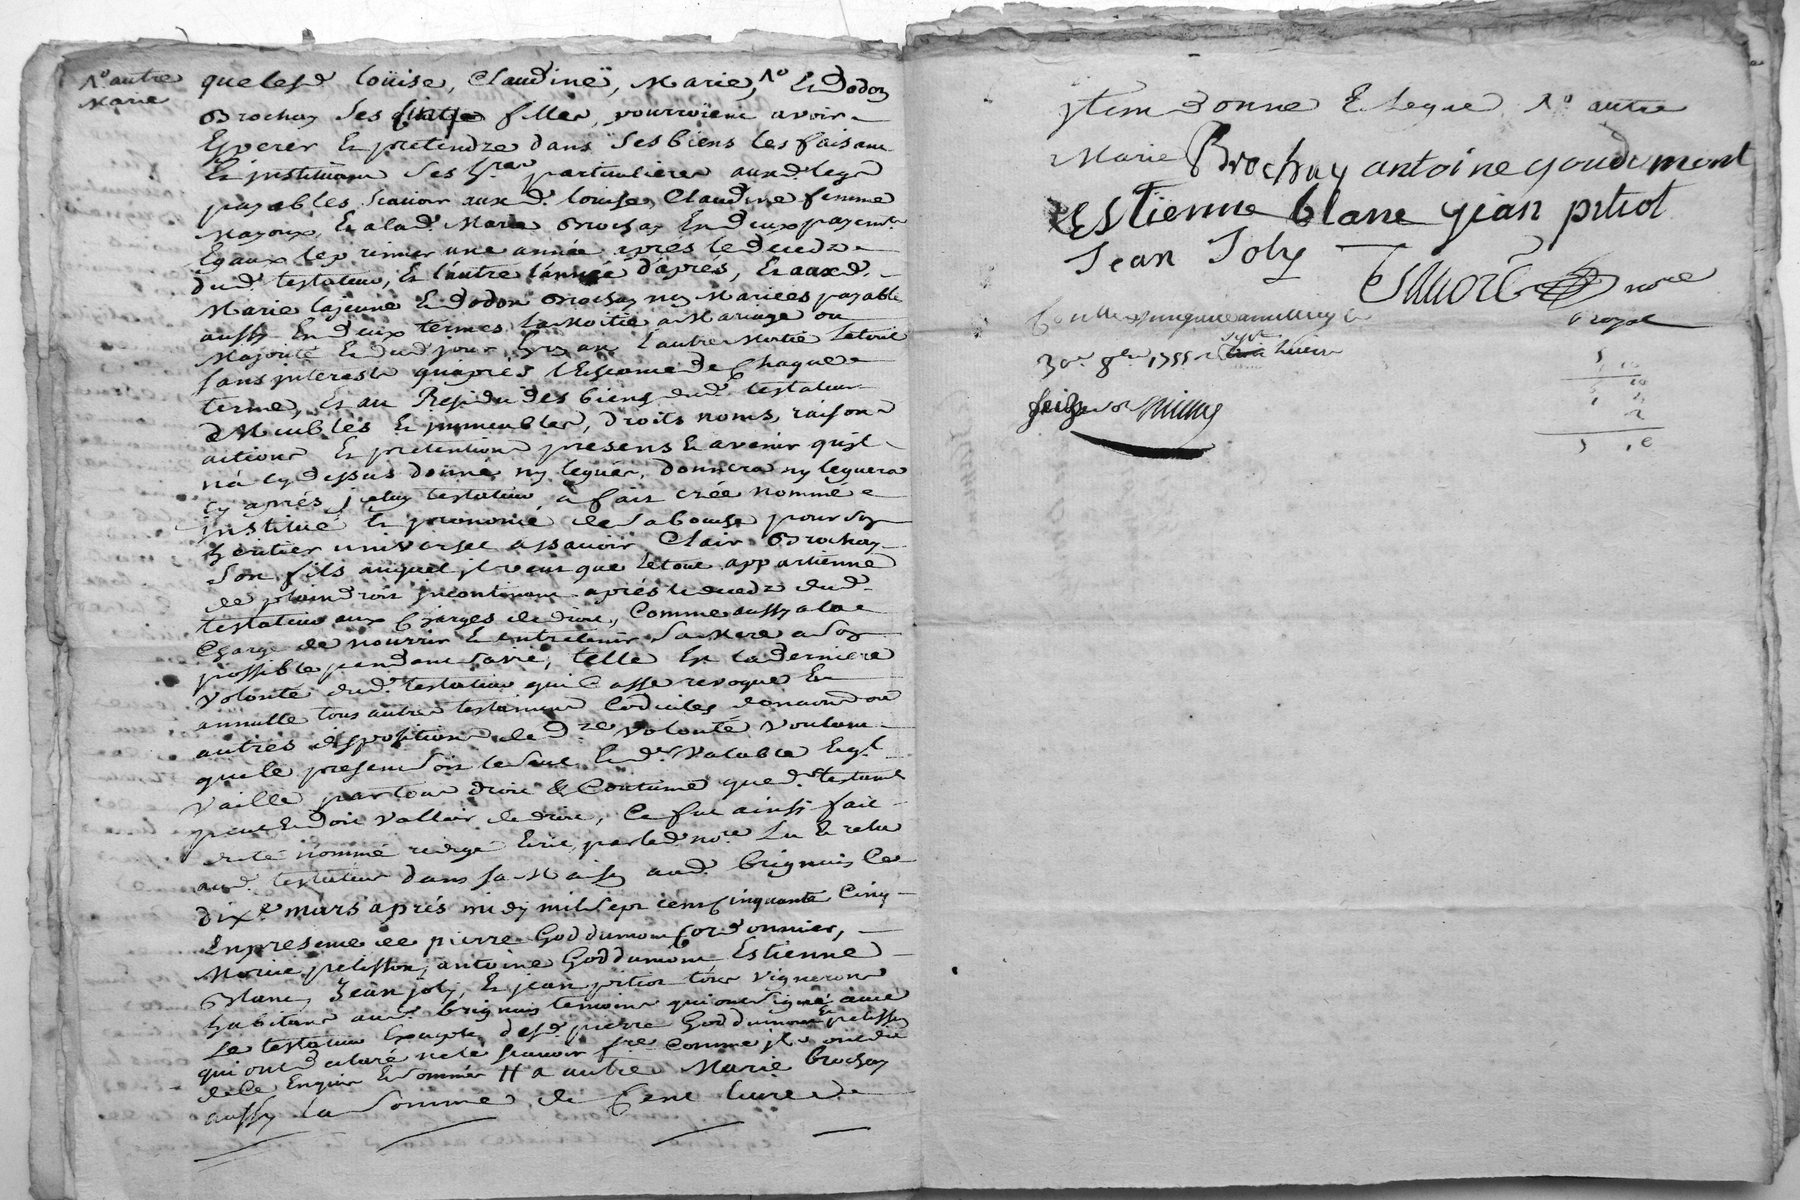 No autre
Marie
que lesd louise, Claudine, Marie, No Et dodon
Brochay ses filles, pourroient avoir
Esperer Et pretendre dans ses biens les faisant
Et instituant ses particulieres auxd legs
payables scavoir auxd. louise, Claudine femme
Mayoux, Et a lad. Marie Brochay En deux payemts
Egaux le premier une année apres le deceds
dud. testateur, Et l'autre l'année d'aprés, Et auxd.
Marie la jeune Et dodon Brochay non Mariées payable
aussy En deux termes la Moitié a Mariage ou
Majorité Et dud jour En un an l'autre Moitié le tout
sans interest qu'apres l'Escheance de Chaque
terme, Et au Residu des biens dud. testateur
Meubles Et immeubles, droits noms, raisons
actions Et pretentions presens Et avenir qu'il
n'a cy dessus donné ny legué, donnera ny leguera
cy aprés, jceluy testateur a fait créé nommé
institué Et prononcé de sa bouche pour son
heritier universel assavoir Clair Brochay
son fils auquel il veut que le tout appartienne
de plain droit incontinant aprés le deceds dud.
testateur aux Charges de droit, Comme aussy a la
Charge de nourrir Et entretenir sa Mere a son
possible pendant sa vie, telle Est la derniere
volonté dud. testateur qui Casse revoque Et
annulle tous autres testament Codiciles donnation ou
autres disposition de dre volonté voulant
que le present soit le seul Et dr. valable Et ql
vaille par tout droit Et Coutume que d. testamt
peut Et doit valloir de droit, Ce fut ainsi fait
dicté nommé redigé Ecrit par led nore Lu Et relu
aud. testateur dans sa Maison aud. brignais Ce
dixe mars aprés midy mil sept cent Cinquante Cinq
En presence de pierre Goddumont Cordonnier,
pelisson, antoine Goddumont Estienne
Blanc, Jean joly, Et jean pitiot tous vignerons
habitans aud. brignais temoins qui ont signé avec
Le testateur Excepté lesd pierre Goddumont Et pelisson
qui ont declaré ne le scavoir fre Comme ils ont dit
de Ce Enquis Et sommés # a autre Marie brochay
aussy la somme de Cent livres
jtem Donne Et Legue No autre
Marie Brochay antoine goudumont
Estienne blanc jean pitiot
Jean Joly
nore
royal
30e 8bre 1755